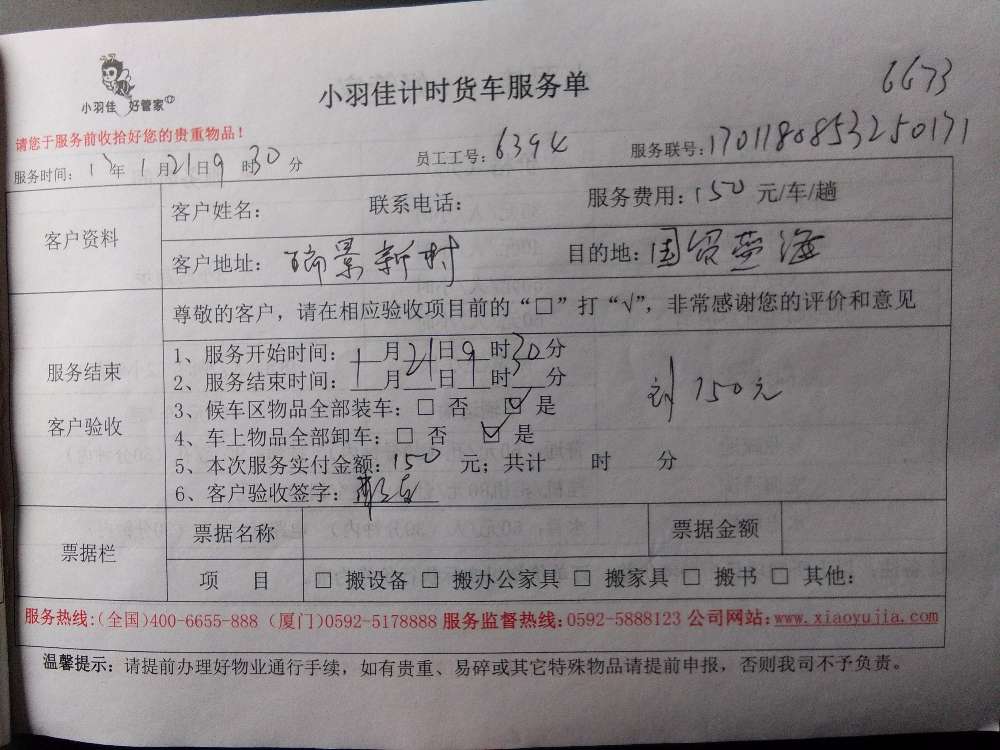 小羽佳 好管家
小羽佳计时货车服务单
6673
请您于服务前收拾好您的贵重物品！
服务时间：17年1月21日9时30分 员工工号：6394 服务联号：1701180853250171
客户资料
客户姓名： 联系电话： 服务费用：150元/车/趟
客户地址：瑞景新村 目的地：国贸蓝海
服务结束
客户验收
尊敬的客户，请在相应验收项目前的“□”打“√”，非常感谢您的评价和意见
1、服务开始时间：1月21日9时30分
2、服务结束时间：__月__日__时__分
3、候车区物品全部装车：□ 否 ☑ 是
4、车上物品全部卸车：□ 否 ☑ 是
5、本次服务实付金额：150 元；共计 时 分
6、客户验收签字：
150元
票据栏
票据名称 票据金额
项 目 □ 搬设备 □ 搬办公家具 □ 搬家具 □ 搬书 □ 其他：
服务热线:(全国)400-6655-888 (厦门)0592-5178888 服务监督热线:0592-5888123 公司网站:www.xiaoyujia.com
温馨提示：请提前办理好物业通行手续，如有贵重、易碎或其它特殊物品请提前申报，否则我司不予负责。